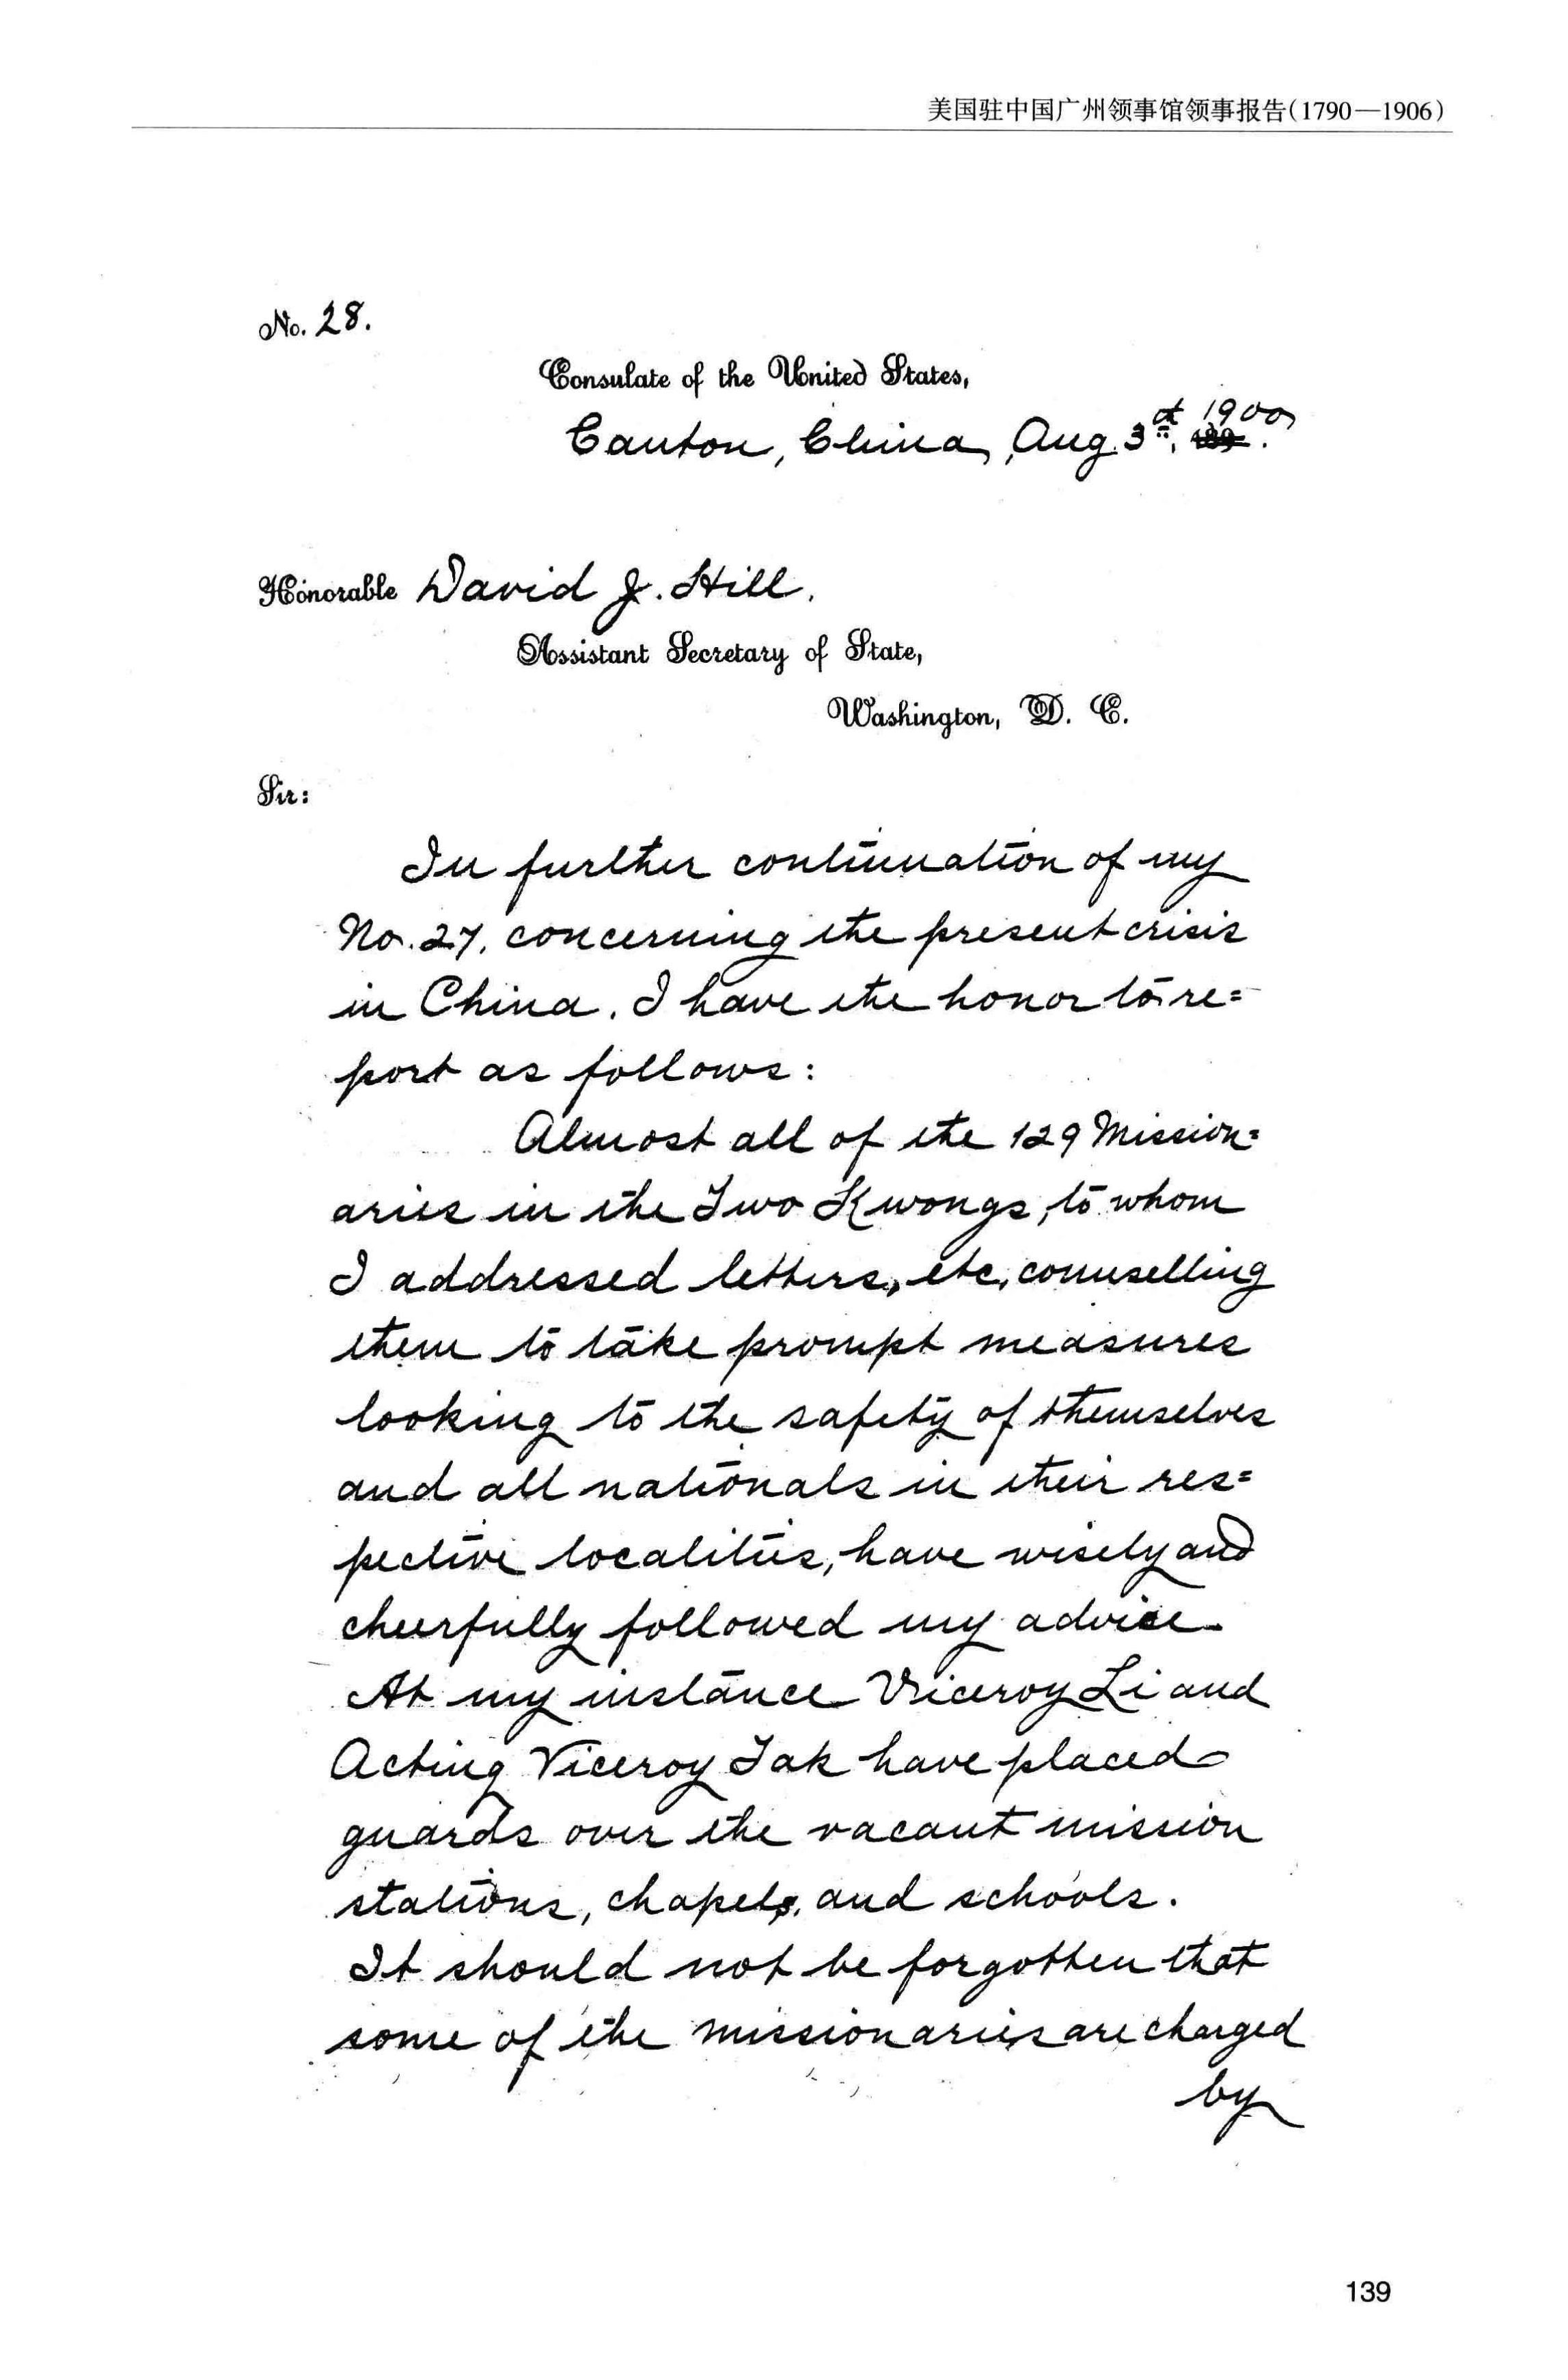 美国驻中国广州领事馆领事报告(1790—1906)
No. 28.
Consulate of the United States,
Canton, China, Aug. 3d, 1900.
Honorable David J. Hill,
Assistant Secretary of State,
Washington, D. C.
Sir:
In further continuation of my
No. 27, concerning the present crisis
in China, I have the honor to re=
port as follows:
Almost all of the 129 Mission=
aries in the Two Kwongs, to whom
I addressed letters, etc, counselling
them to take prompt measures
looking to the safety of themselves
and all nationals in their res=
pective localities, have wisely and
cheerfully followed my advice.
At my instance Viceroy Li and
Acting Viceroy Tak have placed
guards over the vacant mission
stations, chapels, and schools.
It should not be forgotten that
some of the missionaries are charged
by
139